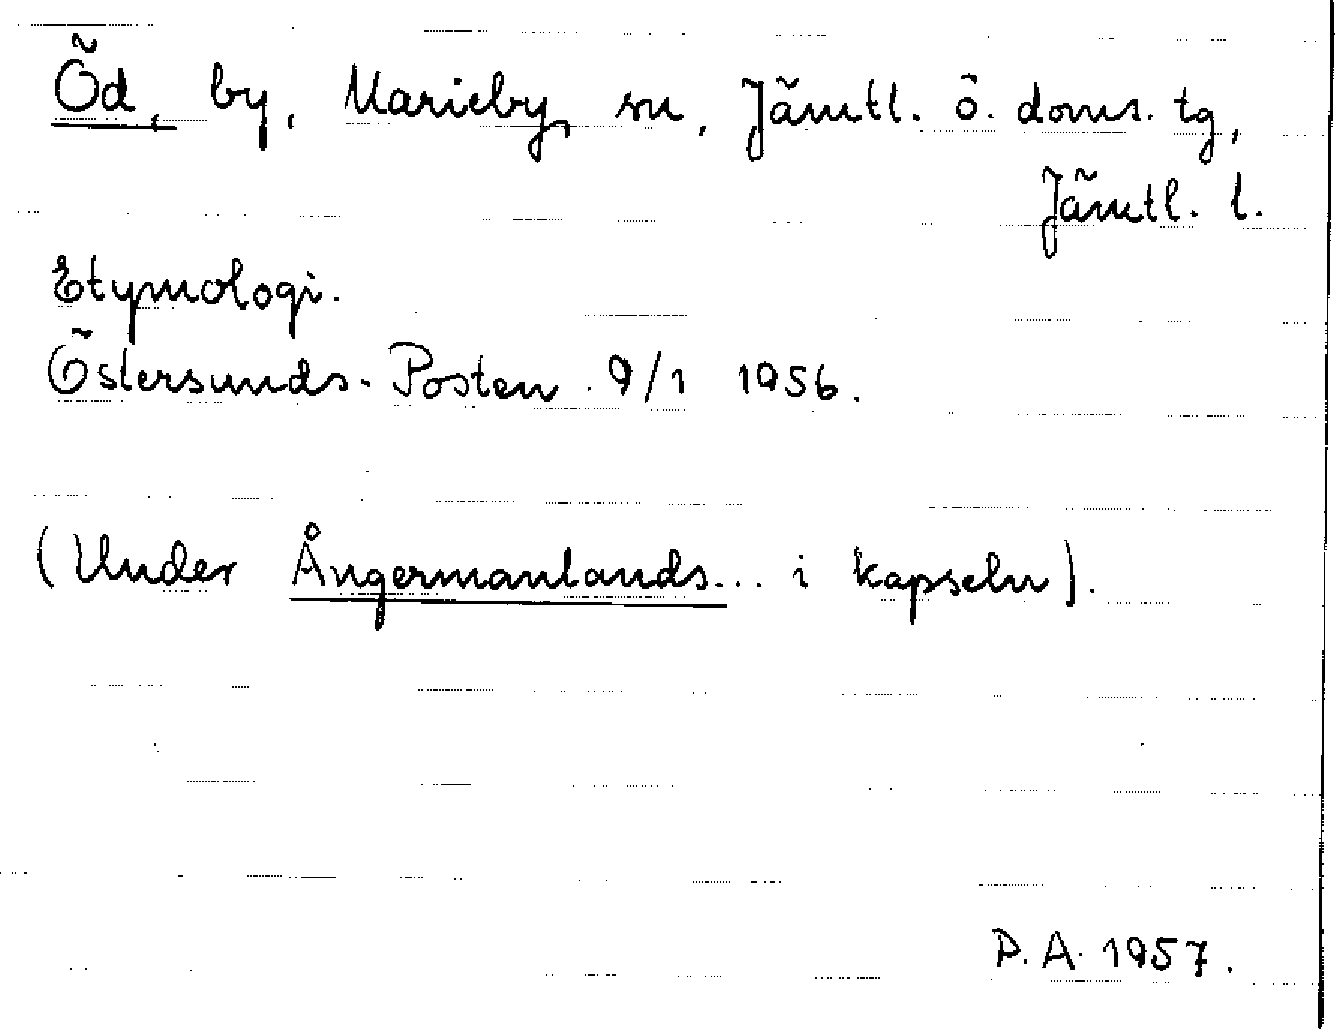 Öd, by, Marieby sn, Jämtl. ö. doms. tg,
Jämtl. l.
Etymologi.
Östersunds-Posten 9/1 1956.
(Under Ångermanlands... i kapseln).
P.A. 1957.